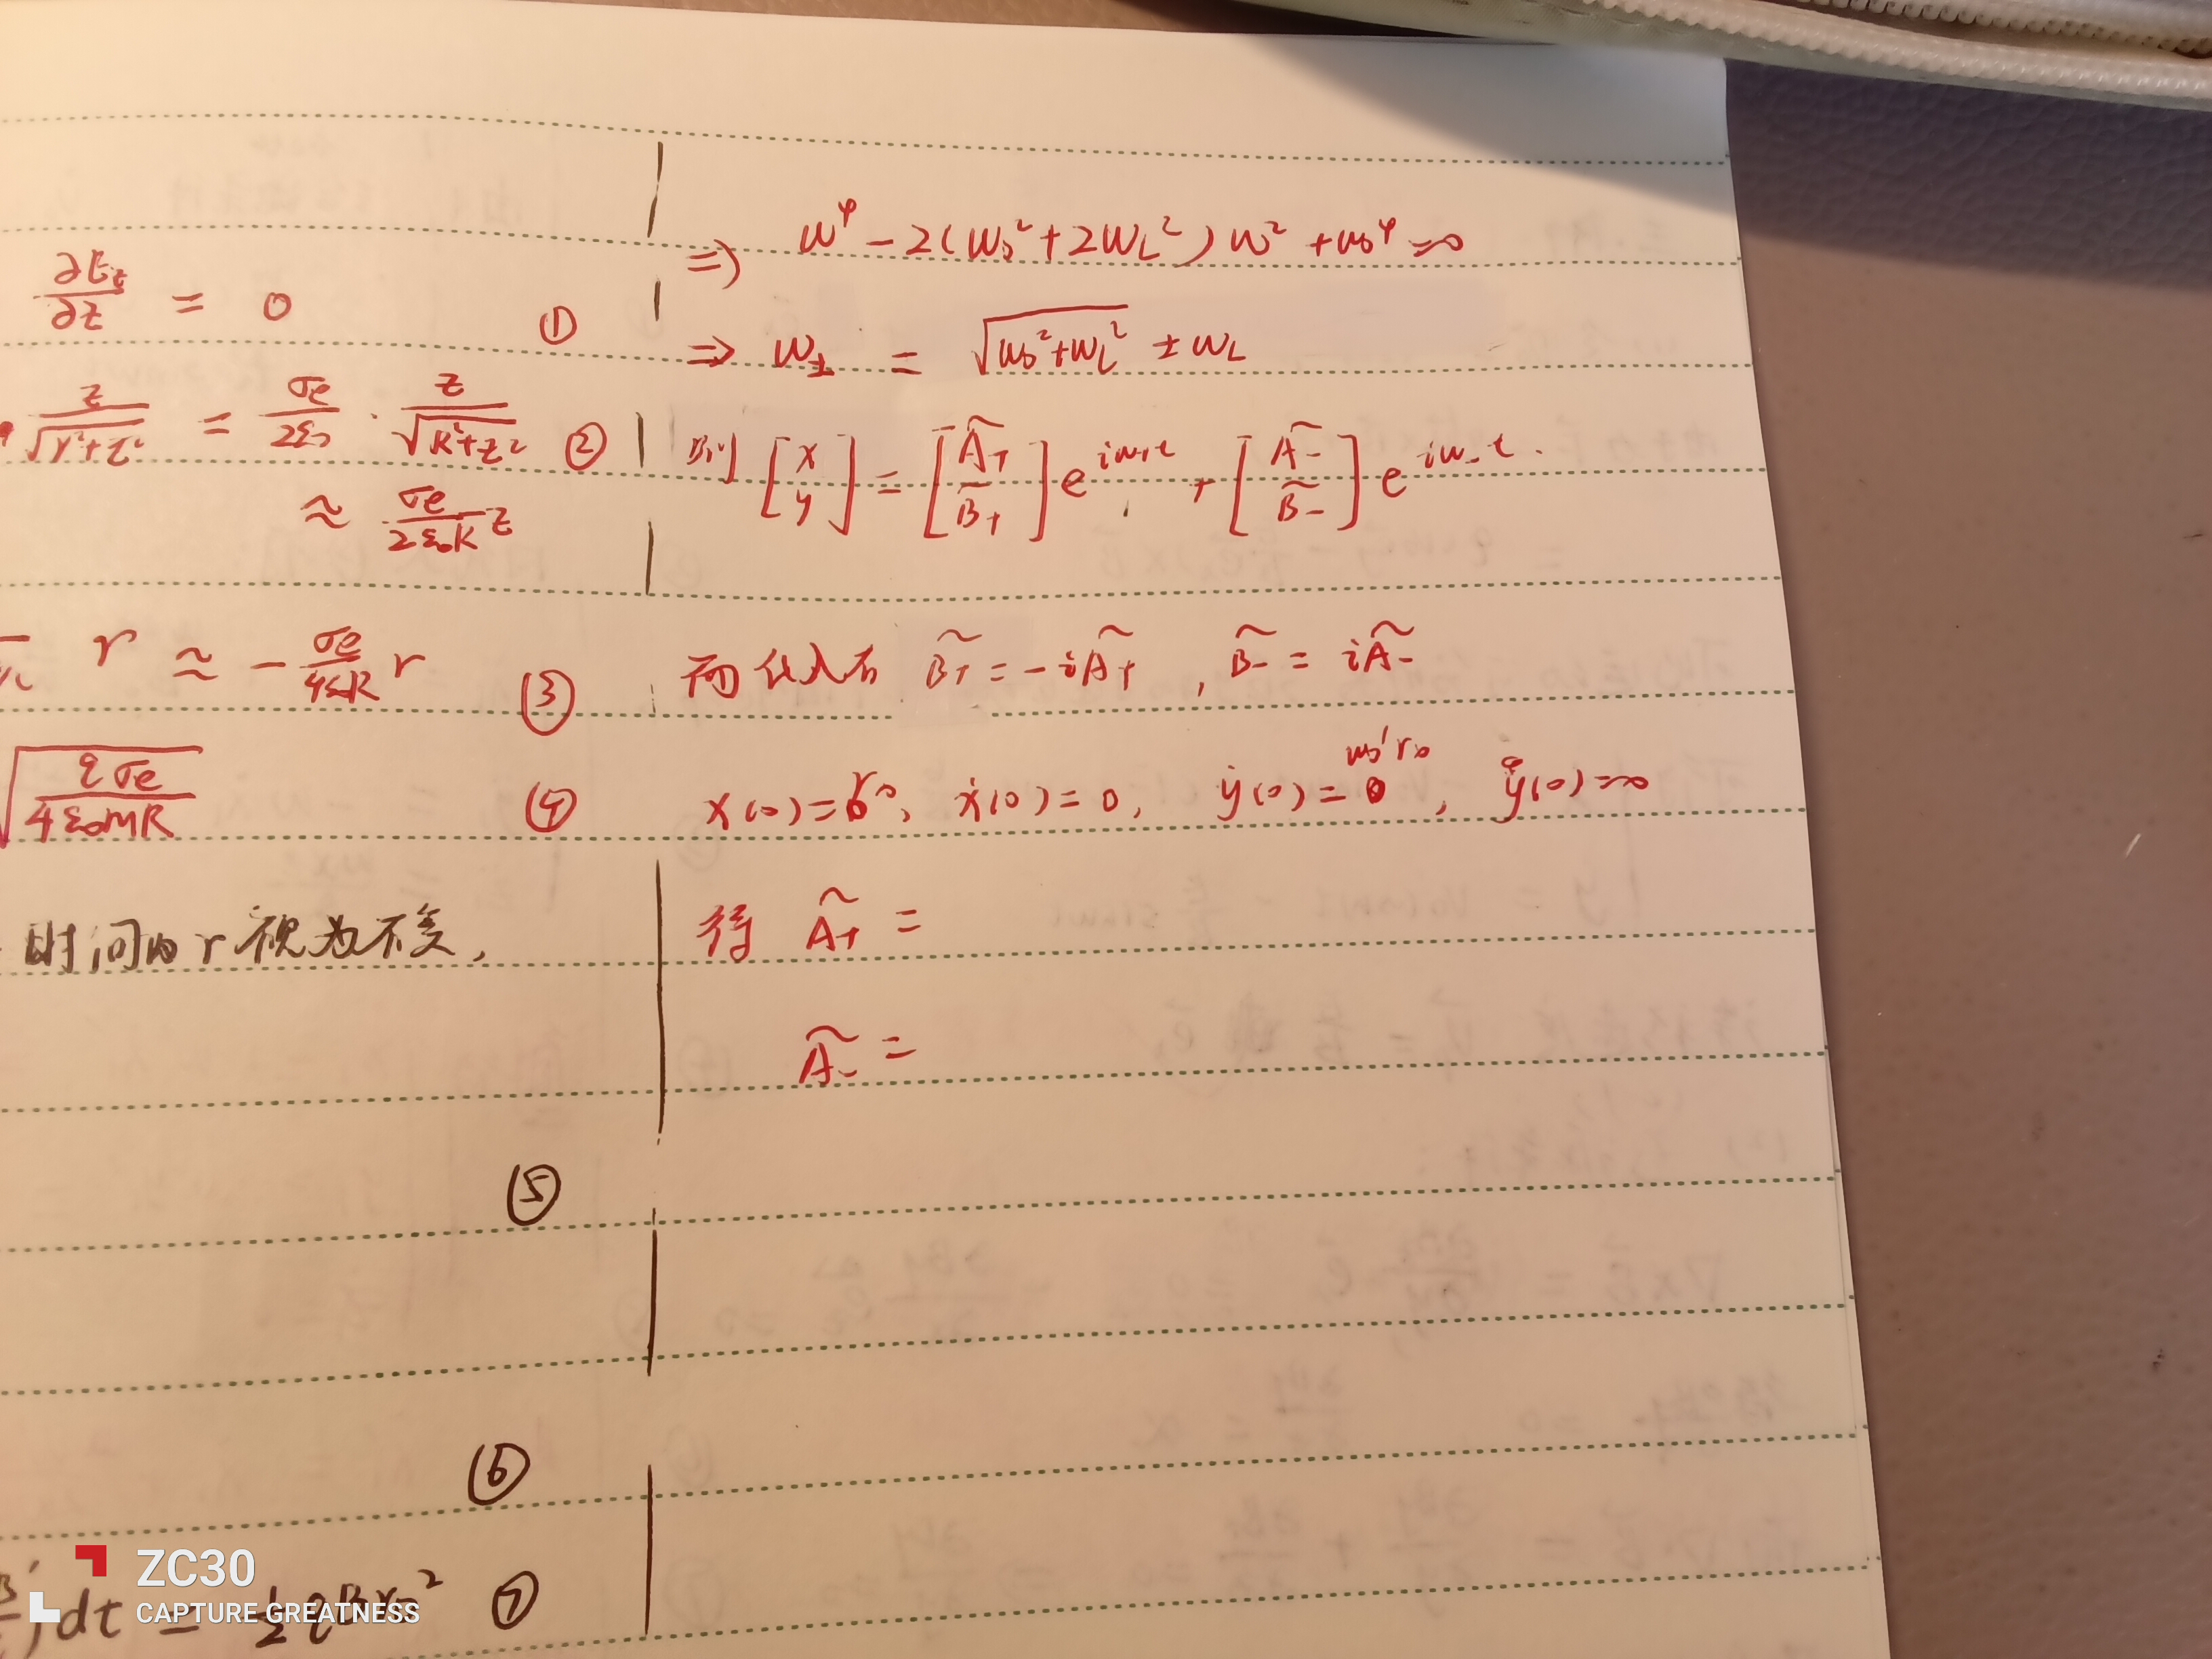 ∂E_z/∂z = 0 ①
z/√(r²+z²) = σe/2ε₀ · z/√(R²+z²) ②
≈ σe/2ε₀R z
r ≈ - σe/4ε₀R r ③
√(qσe/4ε₀mR) ④
时间内r视为不变,
⑤
⑥
dt = ½qBr₀² ⑦
⇒ ω⁴ - 2(ω₀² + 2ω_L²)ω² + ω₀⁴ = 0
⇒ ω± = √(ω₀²+ω_L²) ± ω_L
则 [x y] = [Ã₊ B̃₊] e^{iω₊t} + [Ã₋ B̃₋] e^{iω₋t}.
而代入有 B̃₊ = -iÃ₊, B̃₋ = iÃ₋
x(0) = r₀, ẋ(0) = 0, ẏ(0) = ω₀'r₀, ẏ(0) = 0
得 Ã₊ =
Ã₋ =
ZC30
CAPTURE GREATNESS